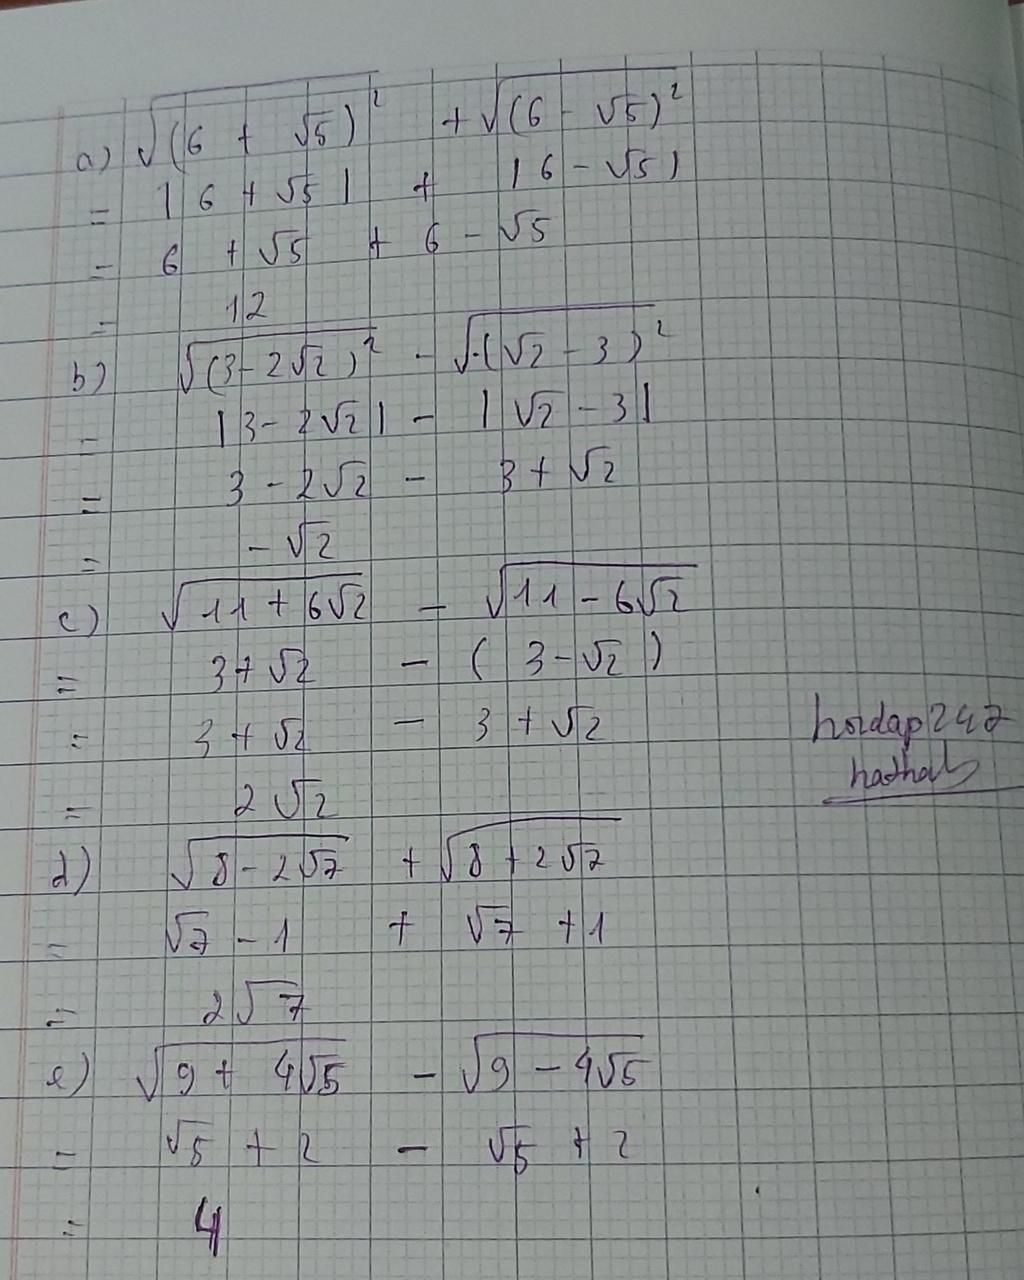 a) √(6 + √5)² + √(6 - √5)²
= |6 + √5| + |6 - √5|
= 6 + √5 + 6 - √5
= 12
b) √(3 - 2√2)² - √(√2 - 3)²
= |3 - 2√2| - |√2 - 3|
= 3 - 2√2 - 3 + √2
= -√2
c) √11 + 6√2 - √11 - 6√2
= 3 + √2 - (3 - √2)
= 3 + √2 - 3 + √2
hoidap247
= 2√2
nathals
d) √8 - 2√7 + √8 + 2√7
= √7 - 1 + √7 + 1
= 2√7
e) √9 + 4√5 - √9 - 4√5
= √5 + 2 - √5 + 2
= 4